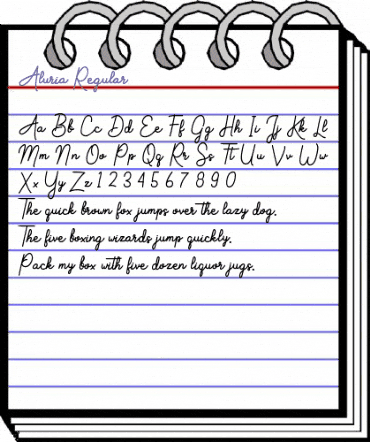 Aluria Regular
Aa Bb Cc Dd Ee Ff Gg Hh Ii Jj Kk Ll
Mm Nn Oo Pp Qq Rr Ss Tt Uu Vv Ww
Xx Yy Zz 1 2 3 4 5 6 7 8 9 0
The quick brown fox jumps over the lazy dog.
The five boxing wizards jump quickly.
Pack my box with five dozen liquor jugs.